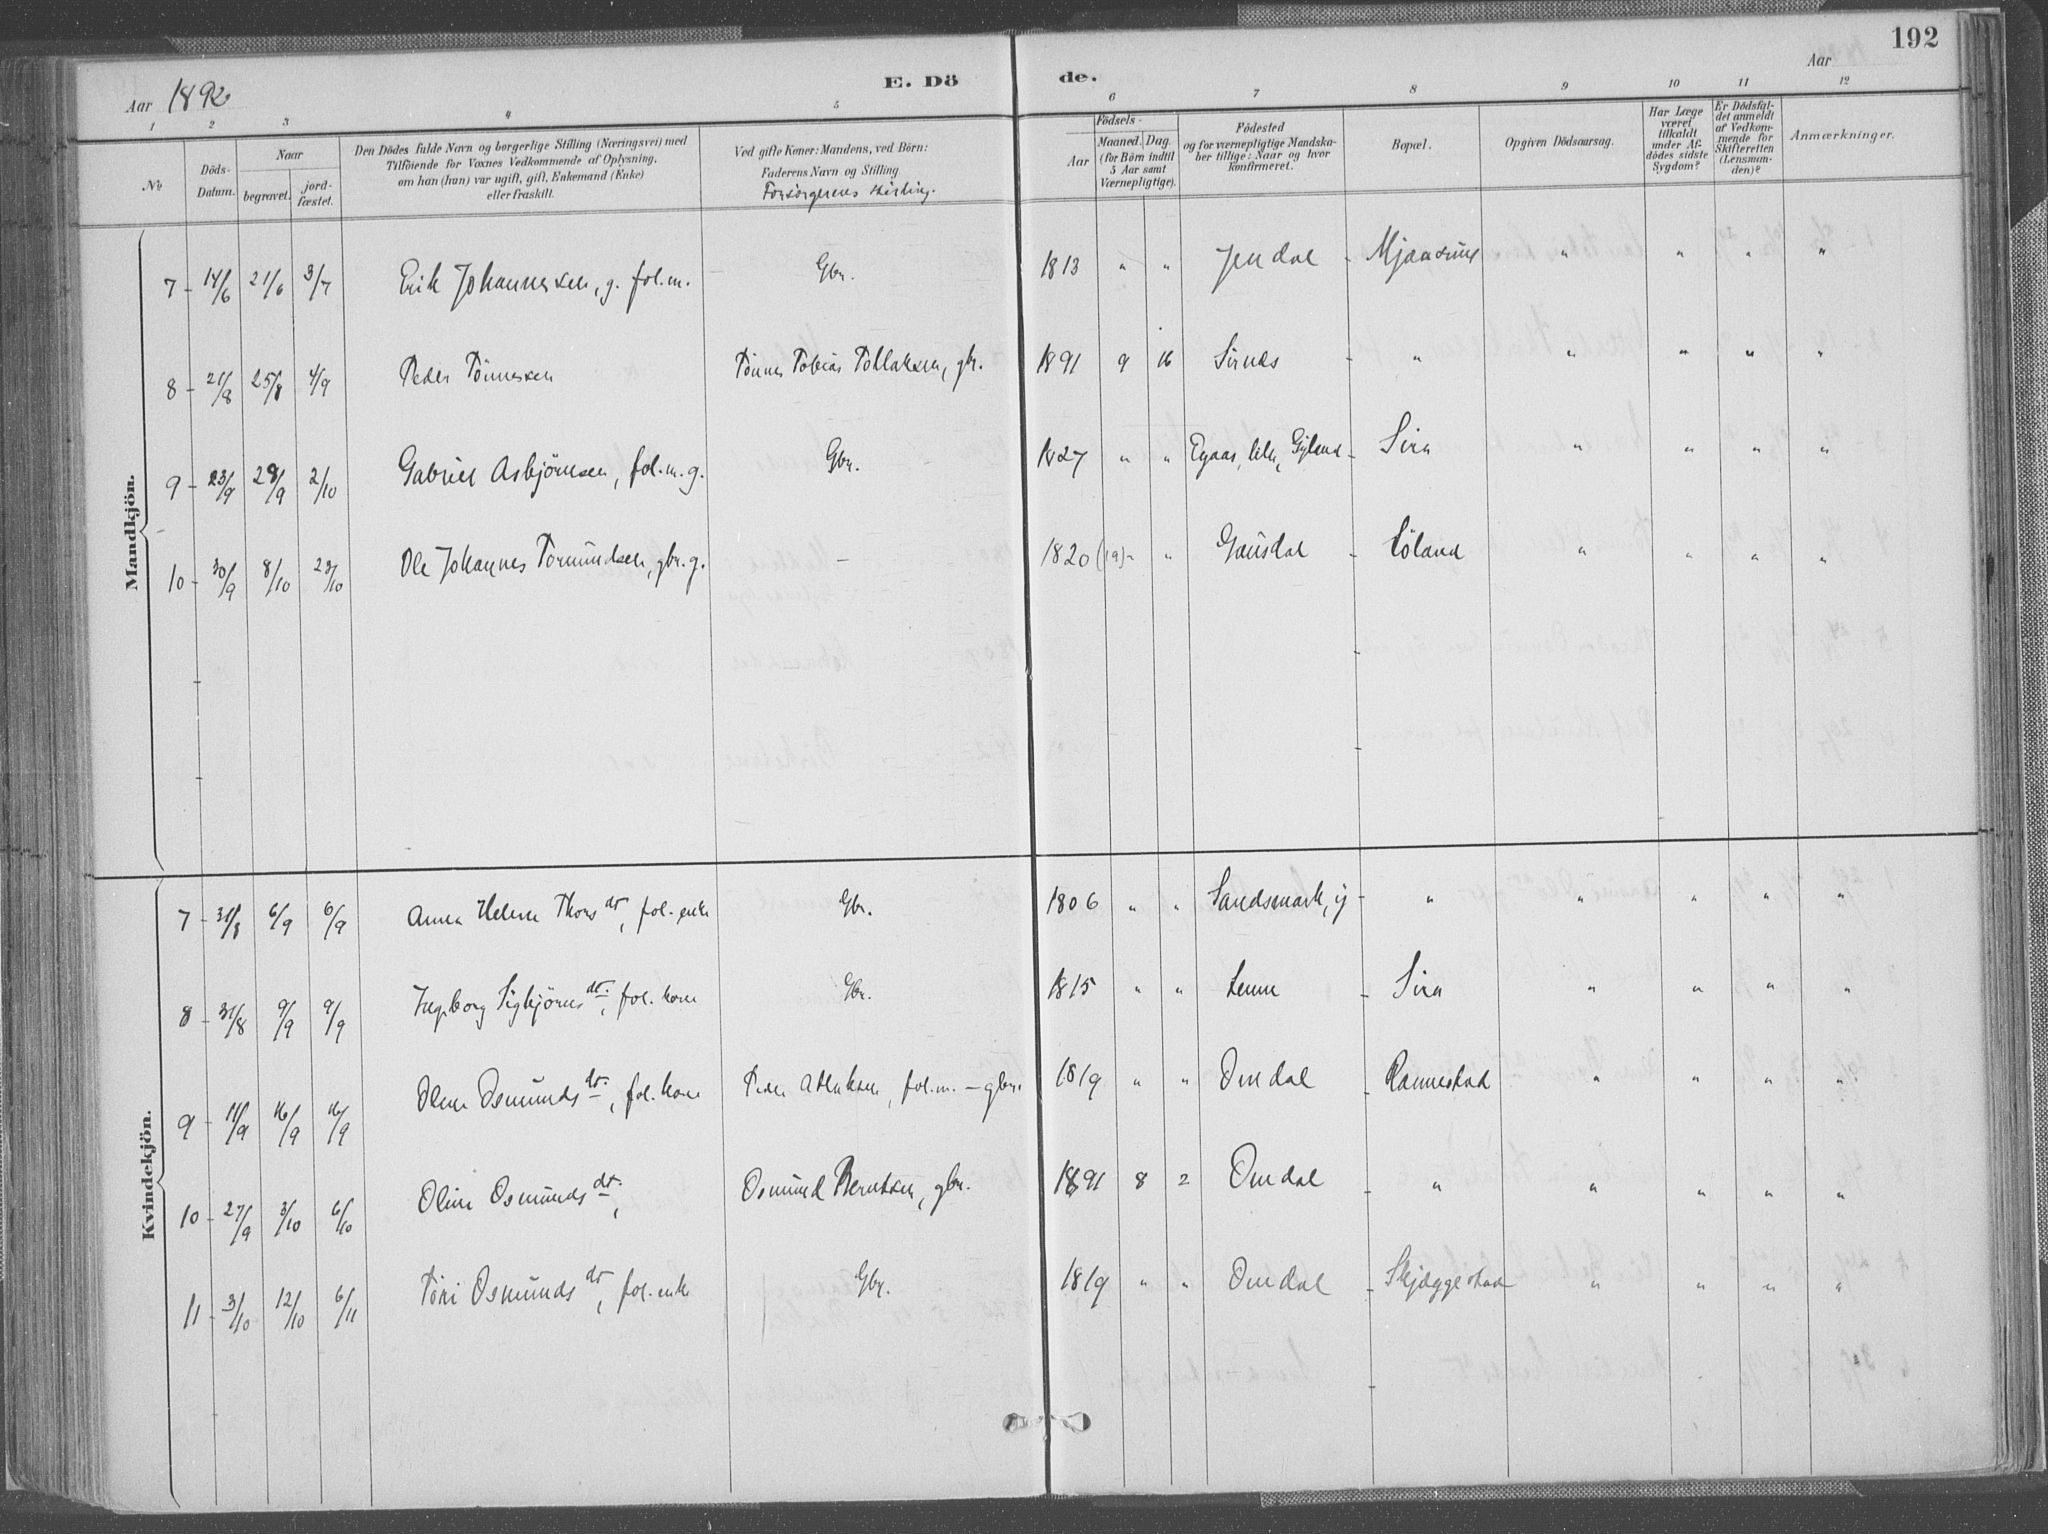 192
Aar 1892 E. Dö de. Aar
1 2 3 4 5 6 7 8 9 10 11 12
No Döds-Datum. Naar begravet. jord-fæstet. Den Dödes fulde Navn og borgerlige Stilling (Næringsvei) med Tilföiende for Voxnes Vedkommende af Oplysning, om han (hun) var ugift, gift, Enkemand (Enke) eller fraskilt. Ved gifte Koner: Mandens, ved Börn: Faderens Navn og Stilling Forsörgerens stilling. Födsels- Aar Maaned. Dag. (for Börn indtil 5 Aar samt Værnepligtige). Födested og for værnepligtige Mandskaber tillige: Naar og hvor konfirmeret. Bopæl. Opgiven Dödsaarsag. Har Læge været tilkaldt under Afdödes sidste Sygdom? Er Dödsfaldet anmeldt af Vedkommende for Skifteretten (Lensmanden)? Anmærkninger.
Mandkjön.
7 - 14/6 21/6 3/7 Erik Johannessen, g. fol.m. Gbr. 1813 " " Jendal - " " " "
8 - 21/8 25/8 4/9 Peder Tönnessen Tönnes Tobias Tollaksen, gbr. 1891 9 16 Sirnes - " " " " "
9 - 23/9 28/9 2/10 Gabriel Asbjörnsen, fol.m.g. Gbr. 1827 " " Gyland - Sira " " " "
10 - 30/9 8/10 23/10 Ole Johannes Tormundsen, gbr. g. - 1820 (19) - " Gausdal - Löland " " " "
Kvindekjön.
7 - 31/8 6/9 6/9 Anna Helene Thorsdt, fol. enke Gbr. 1806 " " Sandsmark, y - " " " " "
8 - 31/8 9/9 9/9 Ingeborg Sigbjörnsdt., fol. kone Gbr. 1815 " " - Sira " " " "
9 - 11/9 16/9 16/9 Osmundsdt., fol. kone Peder Atlaksen, fol.m. - gbr. 1819 " " Omdal - Rannestad " " " "
10 - 27/9 3/10 6/10 Oline Osmundsdt., Osmund Berntsen, gbr. 1891 8 2 Omdal - " " " " "
11 - 3/10 12/10 6/11 Töri Osmundsdt, fol. enke Gbr. 1819 " " Omdal - Skjæggestad " " " "